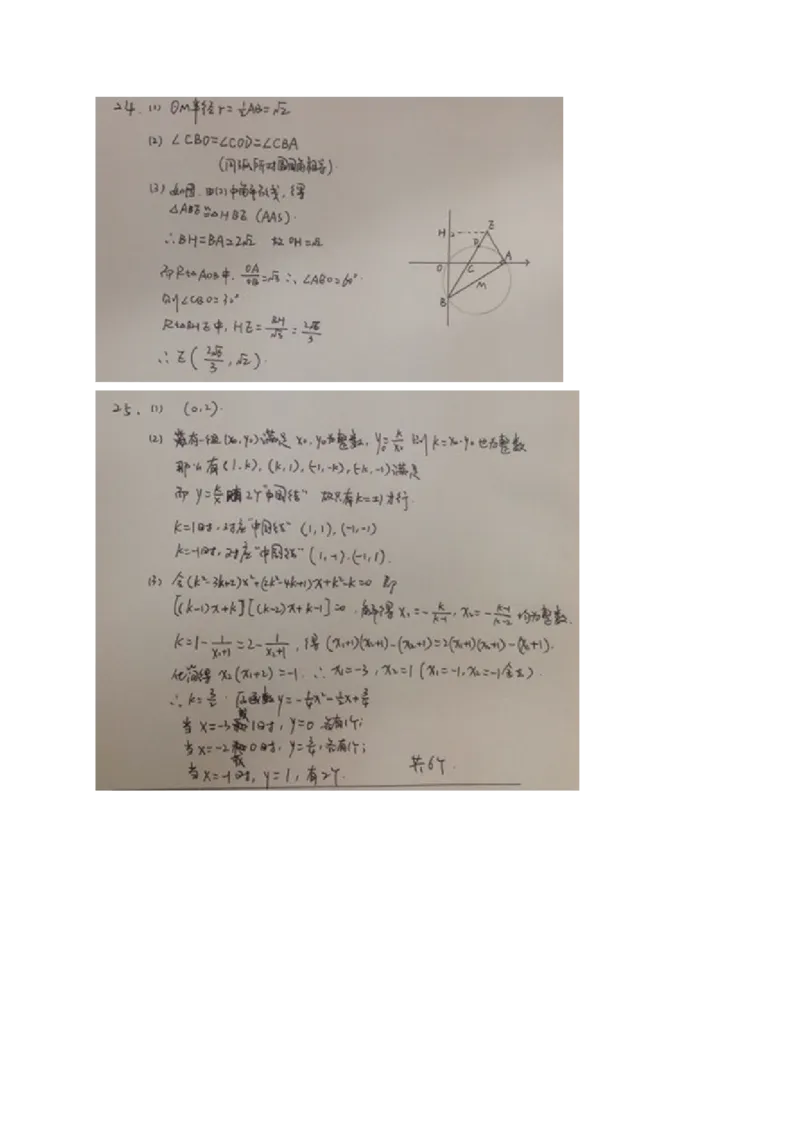 24. (1) ⊙M半径r=½AB=√2
(2) ∠CBO=∠COD=∠CBA
(同弧所对圆周角相等).
(3) 如图,由(2)中角平分线,得
△ABE≌△HBE (AAS).
∴BH=BA=2√2 故OH=√2
而Rt△AOB中, OA/OB=√3 ∴∠ABO=60°.
则∠CBO=30°
Rt△BHE中, HE=BH/√3=2√6/3
∴E(2√6/3, √2).
H
E
D
O
C
A
M
B
25. (1) (0,2).
(2) 若有一组(x₀,y₀)满足x₀,y₀为整数, y₀=k/x₀ 则k=x₀·y₀也为整数
那么有(1,k), (k,1), (-1,-k), (-k,-1)满足
而y=k/x有2个"中国结" 故只有k=±1才行.
k=1时,对应"中国结" (1,1), (-1,-1)
k=-1时,对应"中国结" (1,-1)、(-1,1).
(3) 令(k²-3k+2)x²+(2k²-4k+1)x+k²-k=0 即
[(k-1)x+k][(k-2)x+k-1]=0, 解得x₁=-k/(k-1), x₂=-(k-1)/(k-2) 均为整数.
k=1-1/(x₁+1)=2-1/(x₂+1), 得(x₁+1)(x₂+1)-(x₂+1)=2(x₁+1)(x₂+1)-(x₁+1).
化简得x₂(x₁+2)=-1. ∴x₁=-3, x₂=1 (x₁=-1, x₂=-1舍去).
∴k=3/2. 原函数y=-¼x²-½x+¾
当x=-3或1时, y=0 各有1个;
当x=-2或0时, y=¾, 各有1个;
当x=-1时, y=1, 有2个. 共6个.